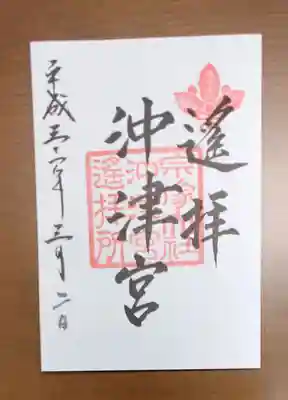 遙拝
沖津宮
宗像大社
沖津宮
遙拝所
平成三十一年三月二日